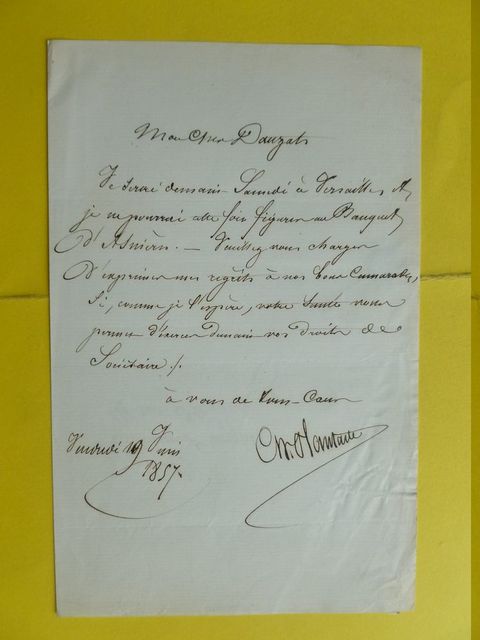 Mon Cher Dauzats
Je serai demain Samedi à Versailles et
je ne pourrai aller figurer au Banquet
d'Asnières. — Veuillez vous charger
d'exprimer mes regrets à nos bons Camarades,
Si, comme je l'espère, votre Santé vous
permet d'exercer demain vos droits de
Sociétaire ./.
à vous de tout Coeur
Vendredi 19 Juin
1857.